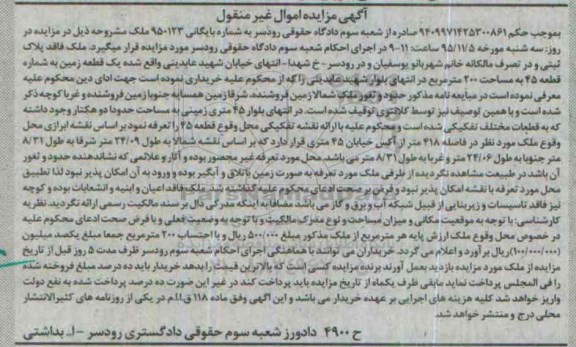 آگهی مزایده اموال غیر منقول
بموجب حکم ۹۴۰۹۹۷۱۴۲۵۳۰۰۸۶۱ صادره از شعبه سوم دادگاه حقوقی رودسر به شماره بایگانی ۹۵۰۱۲۳ ملک مشروحه ذیل در مزایده در
روز: سه شنبه مورخه ۹۵/۱۱/۵ ساعت: ۱۱-۹ در اجرای احکام شعبه سوم دادگاه حقوقی رودسر مورد مزایده قرار میگیرد. ملک فاقد پلاک
ثبتی و در تصرف مالکانه خانم شهربانو یوسفیان و در رودسر - خ شهدا - انتهای خیابان شهید عابدینی واقع شده یک قطعه زمین به شماره
قطعه ۴۵ به مساحت ۲۰۰ مترمربع در انتهای بلوار شهید عابدینی را که از محکوم علیه خریداری نموده است جهت ادای دین محکوم علیه
معرفی نموده است در مبایعه نامه مذکور حدود و ثغور ملک شمالا زمین فروشنده، شرقا زمین همسایه جنوبا زمین فروشنده و غربا کوچه ذکر
شده است و با همین توصیف نیز توسط کلانتری توقیف شده است. در انتهای بلوار ۴۵ متری زمینی به مساحت حدودا دو هکتار وجود داشته
که به قطعات مختلف تفکیکی شده است و محکوم علیه با ارائه نقشه تفکیکی محل وقوع قطعه ۴۵ را تعرفه نمود بر اساس نقشه ابرازی محل
وقوع ملک مورد نظر در فاصله ۴۱۸ متر از آکس خیابان ۴۵ متری قرار دارد که بر اساس نقشه شمالا به طول ۲۴/۰۹ متر شرقا به طول ۸/۳۱
متر جنوبا به طول ۲۴/۰۶ متر و غربا به طول ۸/۳۱ متر می باشد. محل مورد تعرفه غیر محصور بوده و آثار و علائمی که نشاندهنده حدود و ثغور
آن باشد در طبیعت مشاهده نگردیده از طرفی ملک مورد تعرفه به صورت زمین باتلاق و آبگیر بوده و ورود به آن امکان پذیر نبود لذا تطبیق
محل مورد تعرفه با نقشه امکان پذیر نبود و فرض بر صحت ادعای محکوم علیه گذاشته شد. ملک فاقد اعیان و ابنیه و انشعابات بوده و کوچه
نیز فاقد تاسیسات و زیربنایی از قبیل شبکه آب و برق و گاز می باشد مضافا به اینکه مدرکی دال بر سند مالکیت رسمی ارائه نگردید. نظریه
کارشناسی: با توجه به موقعیت مکانی و میزان مساحت و نوع مدرک مالکیت و با توجه به وضعیت فعلی و با فرض صحت ادعای محکوم علیه
در خصوص محل وقوع ملک ارزش پایه هر مترمربع از ملک مذکور مبلغ ۵۰۰/۰۰۰ ریال و با احتساب ۲۰۰ مترمربع جمعا مبلغ یکصد میلیون
(۱۰۰/۰۰۰/۰۰۰) ریال بر آورد و اعلام می گردد. خریداران می توانند با هماهنگی اجرای احکام شعبه سوم رودسر ظرف مدت ۵ روز قبل از تاریخ
مزایده از ملک مورد مزایده بازدید بعمل آورند برنده مزایده کسی است که بالاترین قیمت را بدهد خریدار باید ده درصد مبلغ فروخته شده
را فی المجلس پرداخت نماید مابقی ظرف یکماه از تاریخ مزایده باید پرداخت کند در غیر این صورت ده درصد پرداخت شده به نفع دولت
واریز خواهد شد کلیه هزینه های اجرایی بر عهده خریدار می باشد و این آگهی وفق ماده ۱۱۸ ق.ا.ا.م در یکی از روزنامه های کثیرالانتشار
محلی درج و منتشر خواهد شد.
ح ۴۹۰۰ دادورز شعبه سوم حقوقی دادگستری رودسر - ا. بداشتی